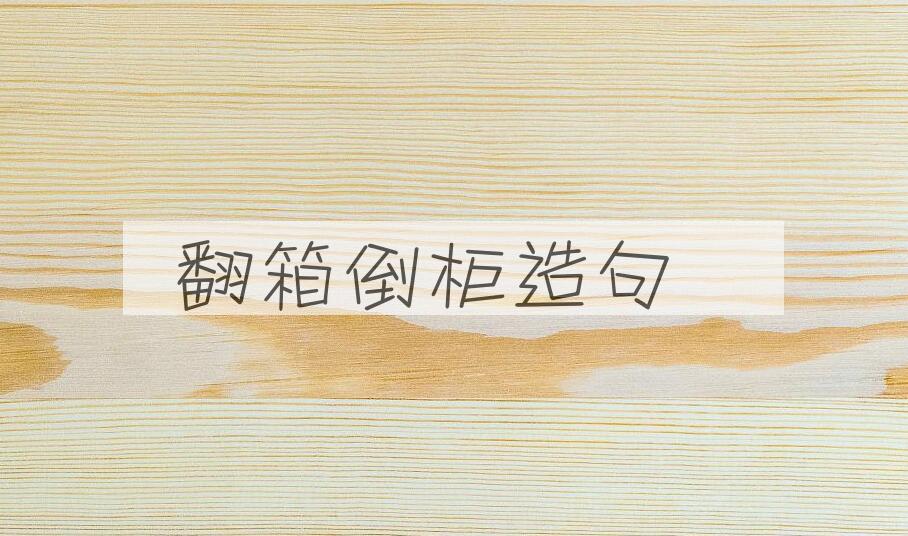 翻箱倒柜造句